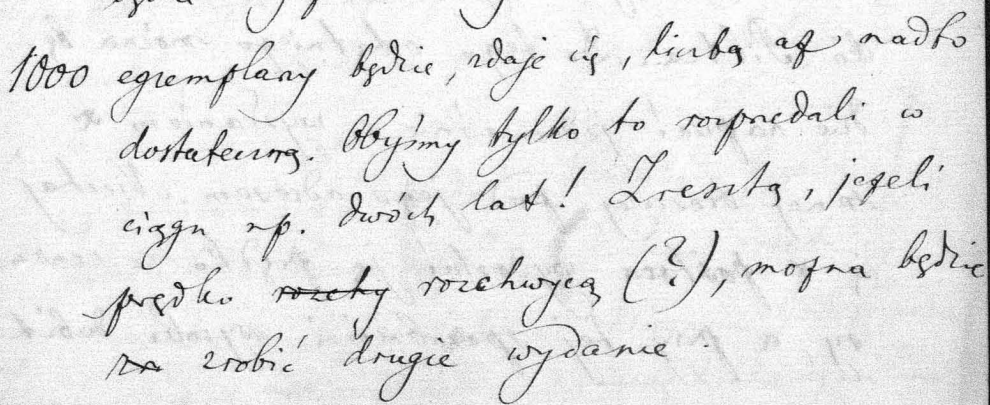 1000 egzemplarzy będzie, zdaje się, liczbą aż nadto
dostateczną. Obyśmy tylko to rozprzedali w
ciągu np. dwóch lat! Zresztą, jeżeli
prędko rozchy rozchwycą (?), można będzie
zrobić drugie wydanie.